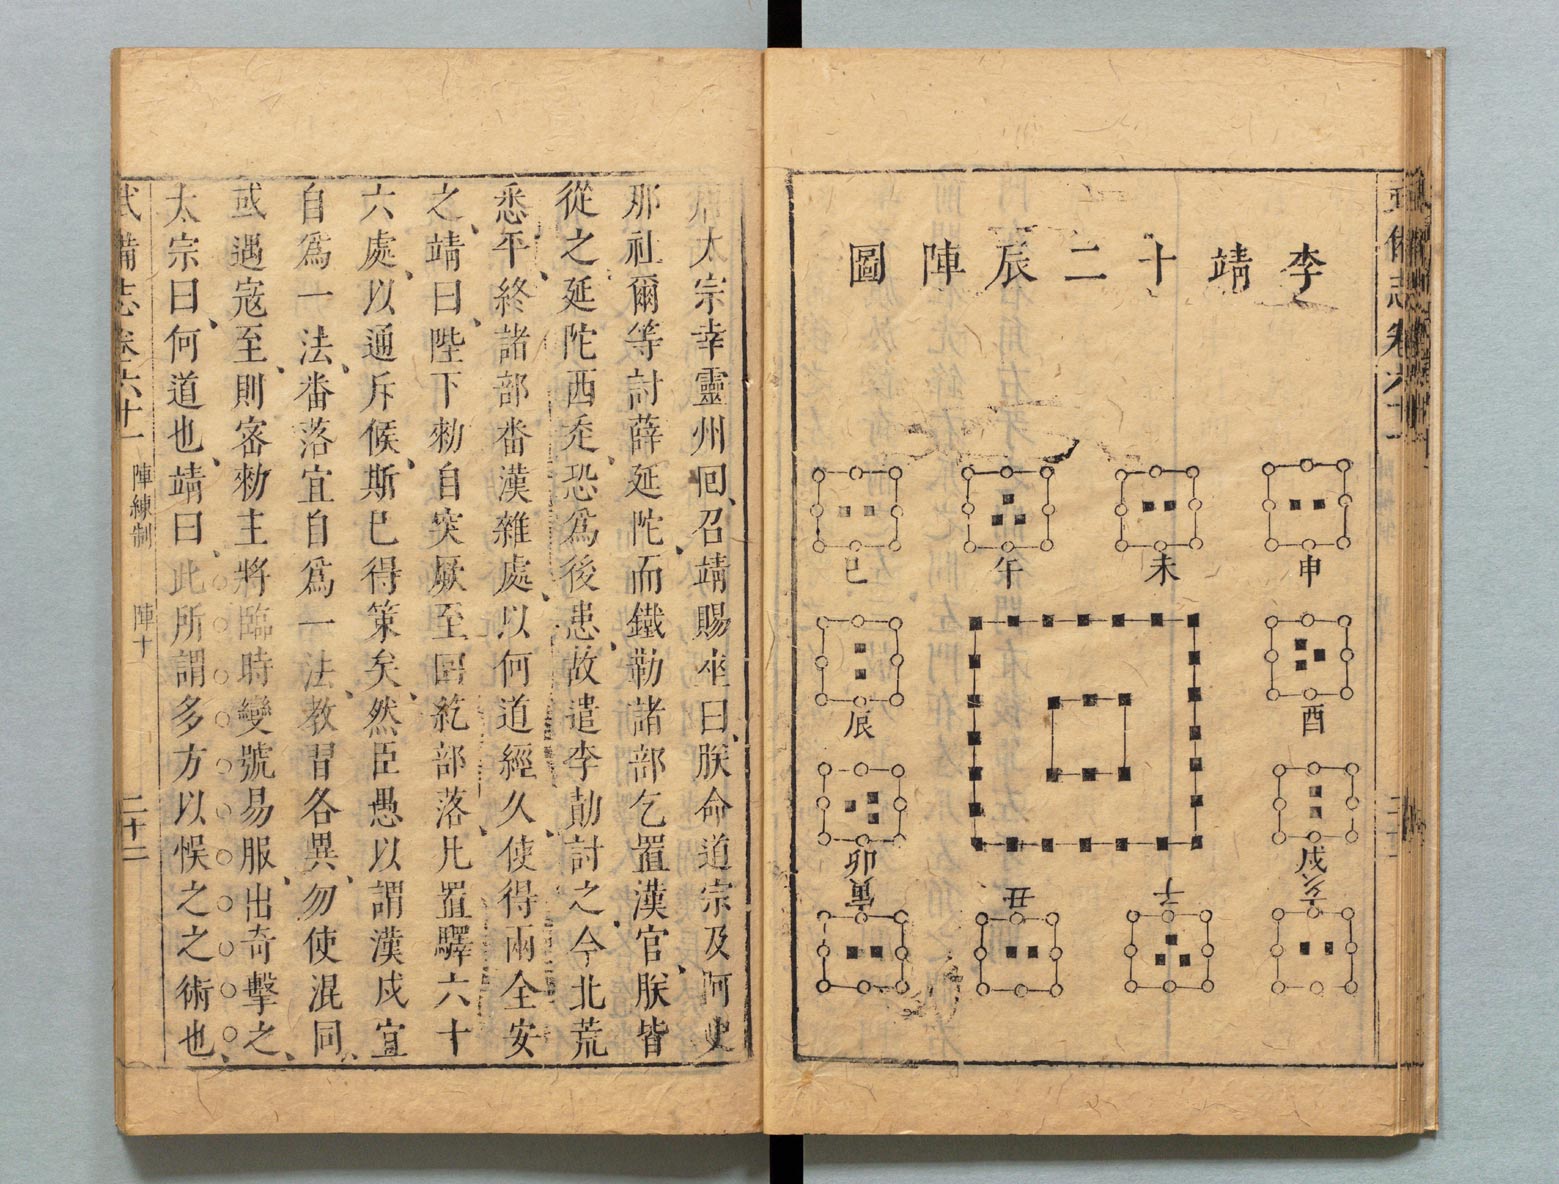 李靖十二辰陣圖
申
未
午
巳
酉
辰
戌
卯
亥
子
丑
寅
太宗幸靈州回召靖賜坐曰朕命道宗及阿史
那社爾等討薛延陀而鐵勒諸部乞置漢官朕皆
從之延陀西走恐爲後患故遣李勣討之今北荒
悉平終諸部番漢雜處以何道經久使得兩全安
之靖曰陛下勑自突厥至回紇部落凡置驛六十
六處以通斥候斯已得策矣然臣愚以謂漢戍宜
自爲一法番落宜自爲一法教習各異勿使混同
或遇寇至則密勑主將臨時變號易服出奇擊之
太宗曰何道也靖曰此所謂多方以悞之之術也
武備志卷六十一 陣練制 陣十 二十二